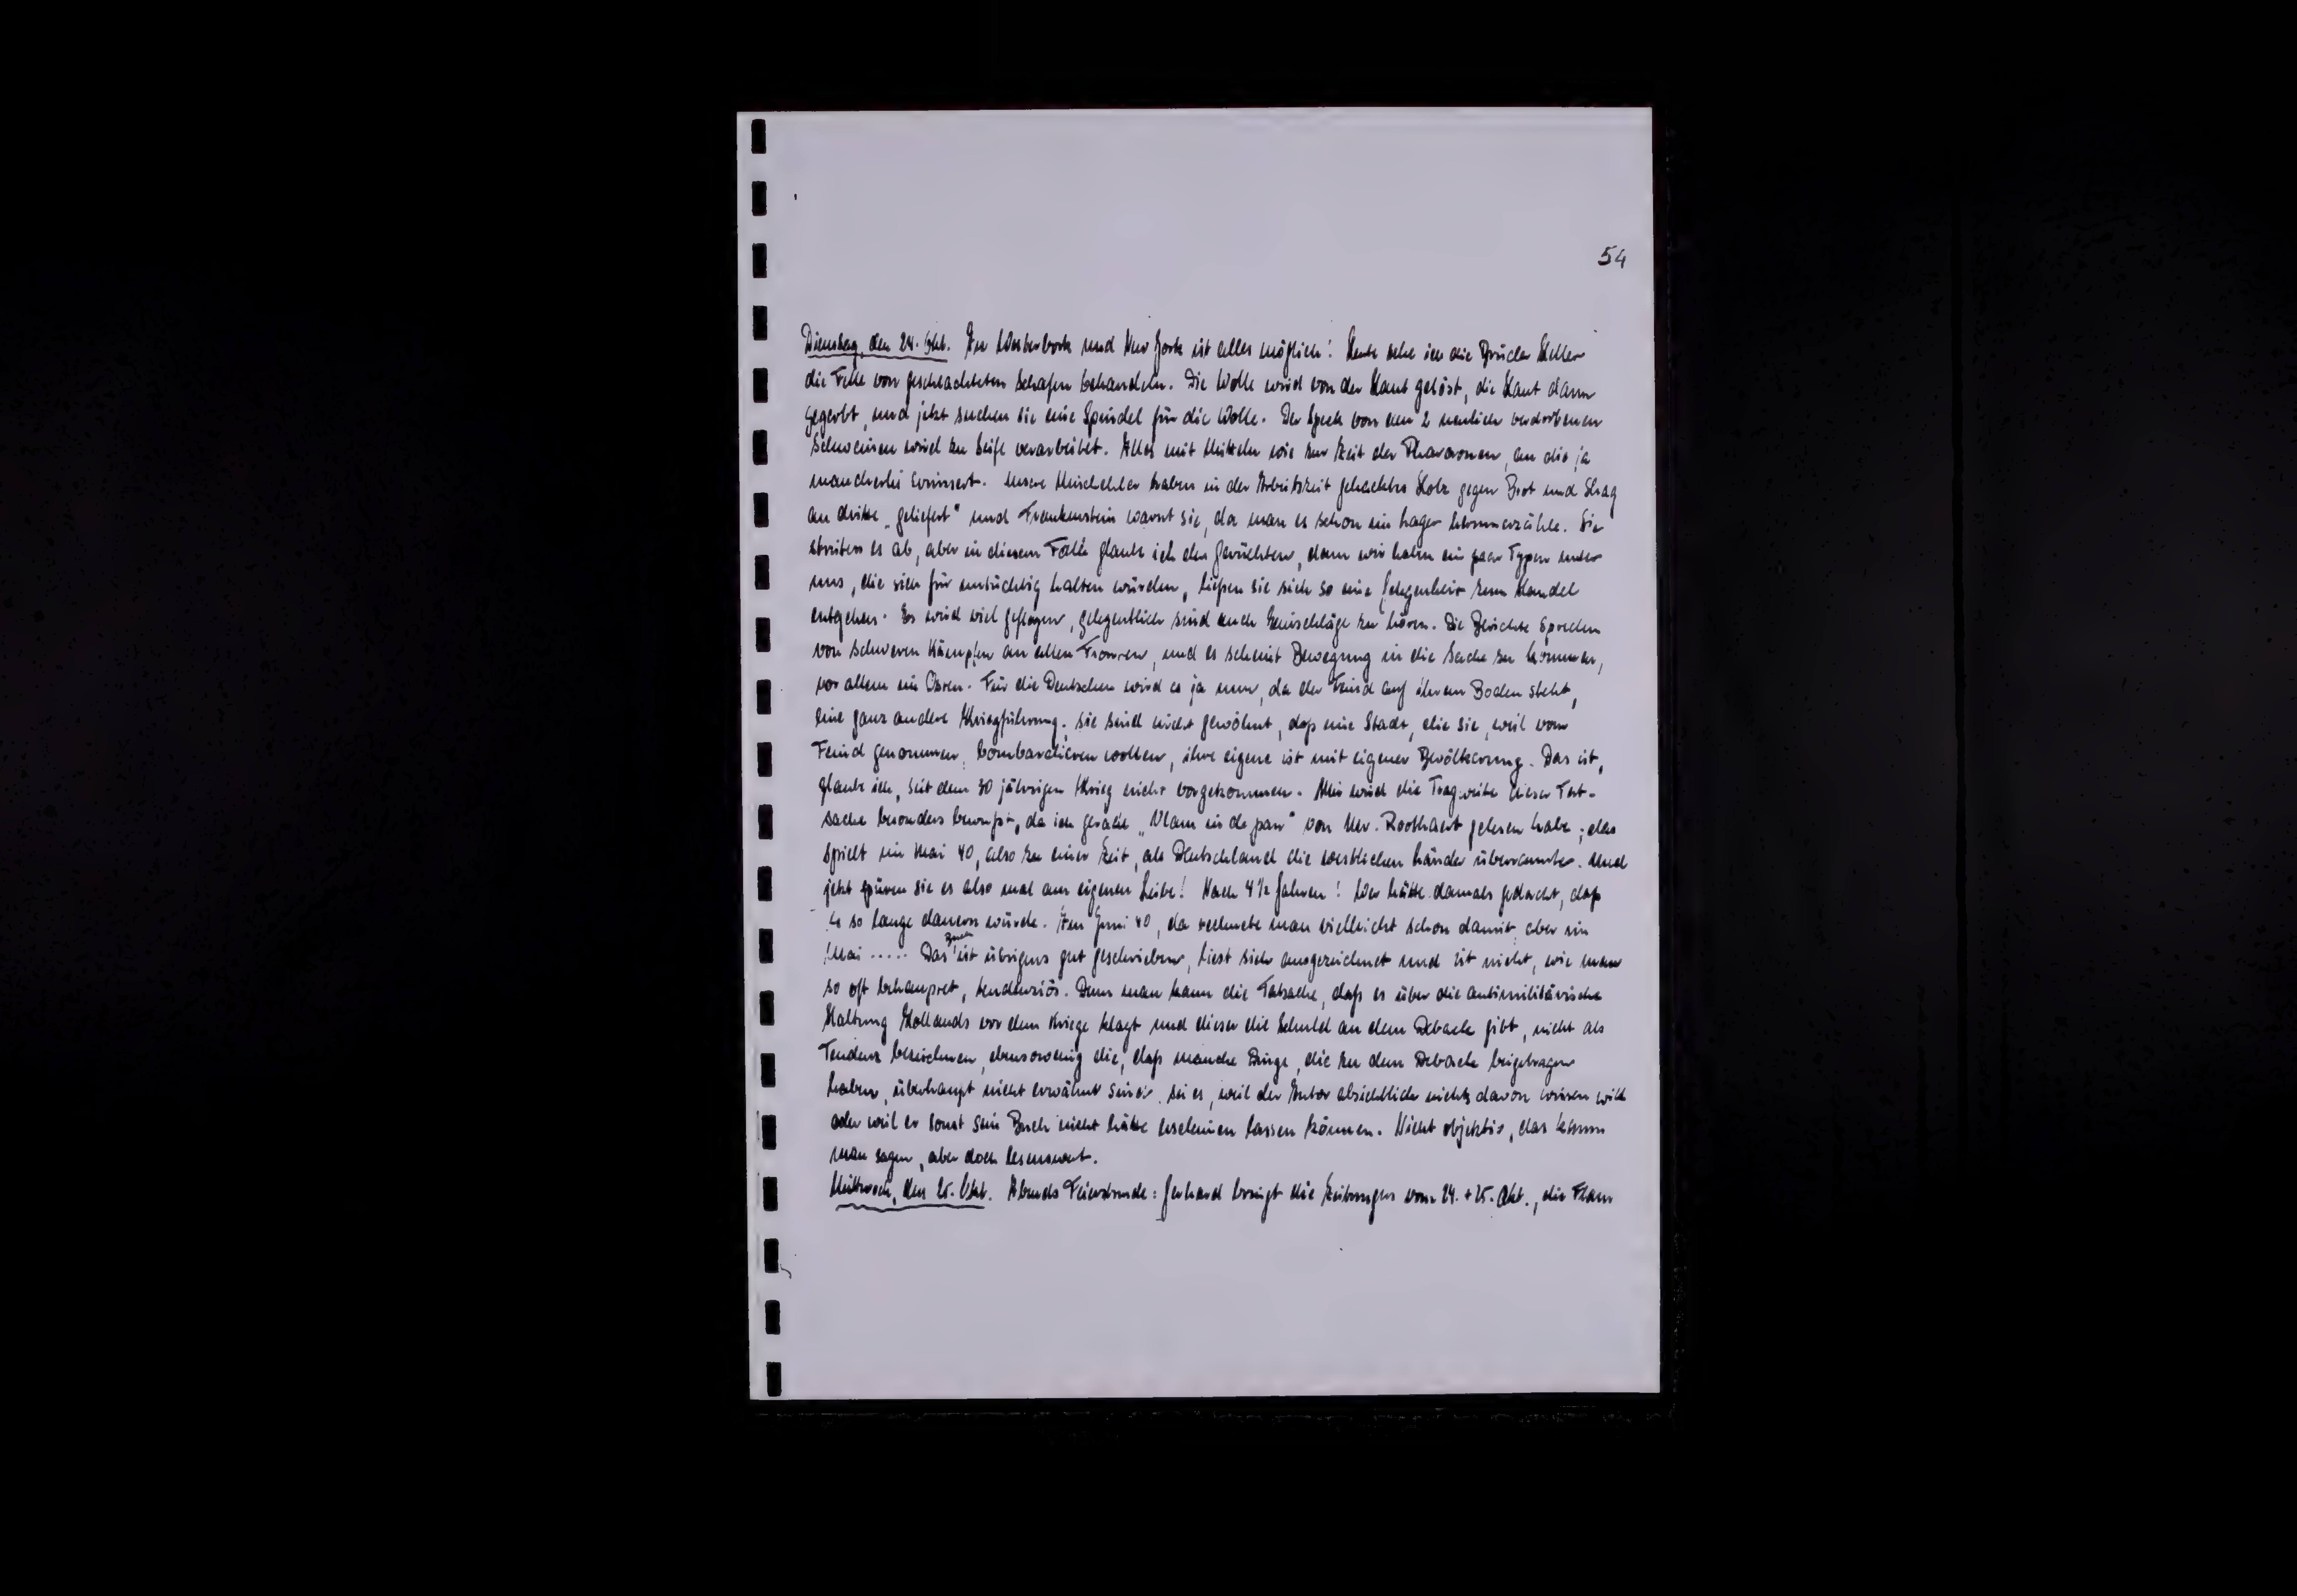 54
Dienstag, den 24. Okt. In Westerbork und New York ist alles möglich! Heute sehe ich die Brüder Keller
die Felle von geschlachteten Schafen behandeln. Die Wolle wird von der Haut gelöst, die Haut dann
gegerbt, und jetzt suchen sie eine Spindel für die Wolle. Der Speck von den 2 neulich verdorbenen
Schweinen wird zu Seife verarbeitet. Alles mit Mitteln wie zur Zeit der Pharaonen, an die ja
mancherlei erinnert. Unsere haben in der Arbeitszeit gehacktes Holz gegen Brot und Shag
an dritte „geliefert" und Frankenstein warnt sie, da man es schon im Lager herumerzähle. Sie
streiten es ab, aber in diesem Falle glaube ich den Gerüchten, denn wir haben ein paar Typen unter
uns, die sich für untüchtig halten würden, ließen sie sich so eine Gelegenheit zum Handel
entgehen. Es wird viel geflogen, gelegentlich sind auch Einschläge zu hören. Die Berichte sprechen
von schweren Kämpfen an allen Fronten, und es scheint Bewegung in die Sache zu kommen,
vor allem im Osten. Für die Deutschen wird es ja nun, da der Feind auf ihrem Boden steht,
eine ganz andere Kriegführung; sie sind nicht gewöhnt, daß eine Stadt, die sie, weil vom
Feind genommen, bombardieren wollen, ihre eigene ist mit eigener Bevölkerung. Das ist,
glaube ich, seit dem 30 jährigen Krieg nicht vorgekommen. Mir wird die Tragweite dieser Tat-
sache besonders bewußt, da ich gerade „Vlam in de pan" von Mr. Roothaert gelesen habe; das
spielt im Mai 40, also zu einer Zeit, als Deutschland die westlichen Länder überrannte. Und
jetzt spüren sie es also mal am eigenen Leibe! Nach 4½ Jahren! Wer hätte damals gedacht, daß
es so lange dauern würde. Im Juni 40, da rechnete man vielleicht schon damit, aber im
Mai ..... Das Buch ist übrigens gut geschrieben, liest sich ausgezeichnet und ist nicht, wie man
so oft behauptet, tendenziös. Denn man kann die Tatsache, daß es über die antimilitärische
Haltung Hollands vor dem Kriege klagt und dieser die Schuld an dem Debacle gibt, nicht als
Tendenz bezeichnen, ebensowenig die, daß manche Dinge, die zu dem Debacle beigetragen
haben, überhaupt nicht erwähnt sind, sei es, weil der Autor absichtlich nichts davon wissen will
oder weil er sonst sein Buch nicht hätte erscheinen lassen können. Nicht objektiv, das kann
man sagen, aber doch lesenswert.
Mittwoch, den 25. Okt. Abends Feierstunde: Gerhard bringt die Zeitungen vom 24. + 25. Okt., die Frau